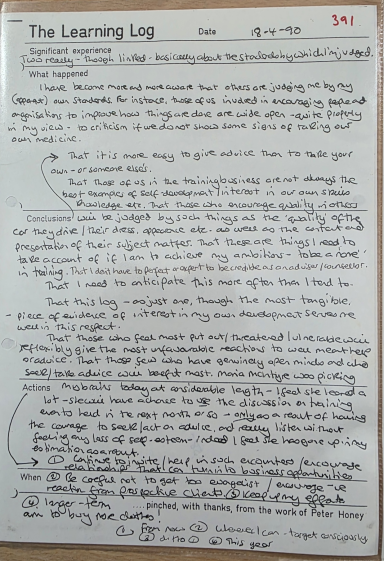 391
The Learning Log Date 18-4-90
Significant experience
Two really - though linked - basically about the standards by which I'm judged.
What happened
I have become more and more aware that others are judging me by my
(apparent) own standards. For instance, those of us involved in encouraging people and
organisations to improve how things are done are wide open - quite properly
in my view - to criticism if we do not show some signs of taking our
own medicine.
That it is more easy to give advice than to take your
own - or someone else's.
That those of us in the training business are not always the
best examples of self-development / interest in our own skills
knowledge etc. That those who encourage quality in others
Conclusions will be judged by such things as the 'quality' of the
car they drive / their dress, appearance etc. as well as the content and
presentation of their subject matter. That these are things I need to
take account of if I am to achieve my ambitions - to be a 'name'
in training. That I don't have to be perfect or expert to be credible as an adviser / counsellor.
That I need to anticipate this more often than I tend to.
That this log - as just one, though the most tangible,
- piece of evidence of interest in my own development serves me
well in this respect.
That those who feel most put out / threatened / vulnerable will
reflexibly give the most unfavourable reactions to well meant help
or advice. That those few who have genuinely open minds and who
seek / take advice will benefit most. Mona McIntyre was picking
Actions my brains today at considerable length - I feel she learned a
lot - she will have a chance to use the discussion on training
events to be held in the next month or so - only as a result of having
the courage to seek / act on advice, and really listen without
feeling any loss of self-esteem - indeed I feel she has gone up in my
estimation as a result.
① Continue to invite / help in such encounters / encourage
relationships that can turn into business opportunities
When ② Be careful not to get too evangelist / encourage -ve
reaction from prospective clients ③ Keep up my efforts
④ Longer-term ....pinched, with thanks, from the work of Peter Honey
aim to buy nice clothes!
① From now ② Wherever I can - target consciously
③ ditto ④ This year